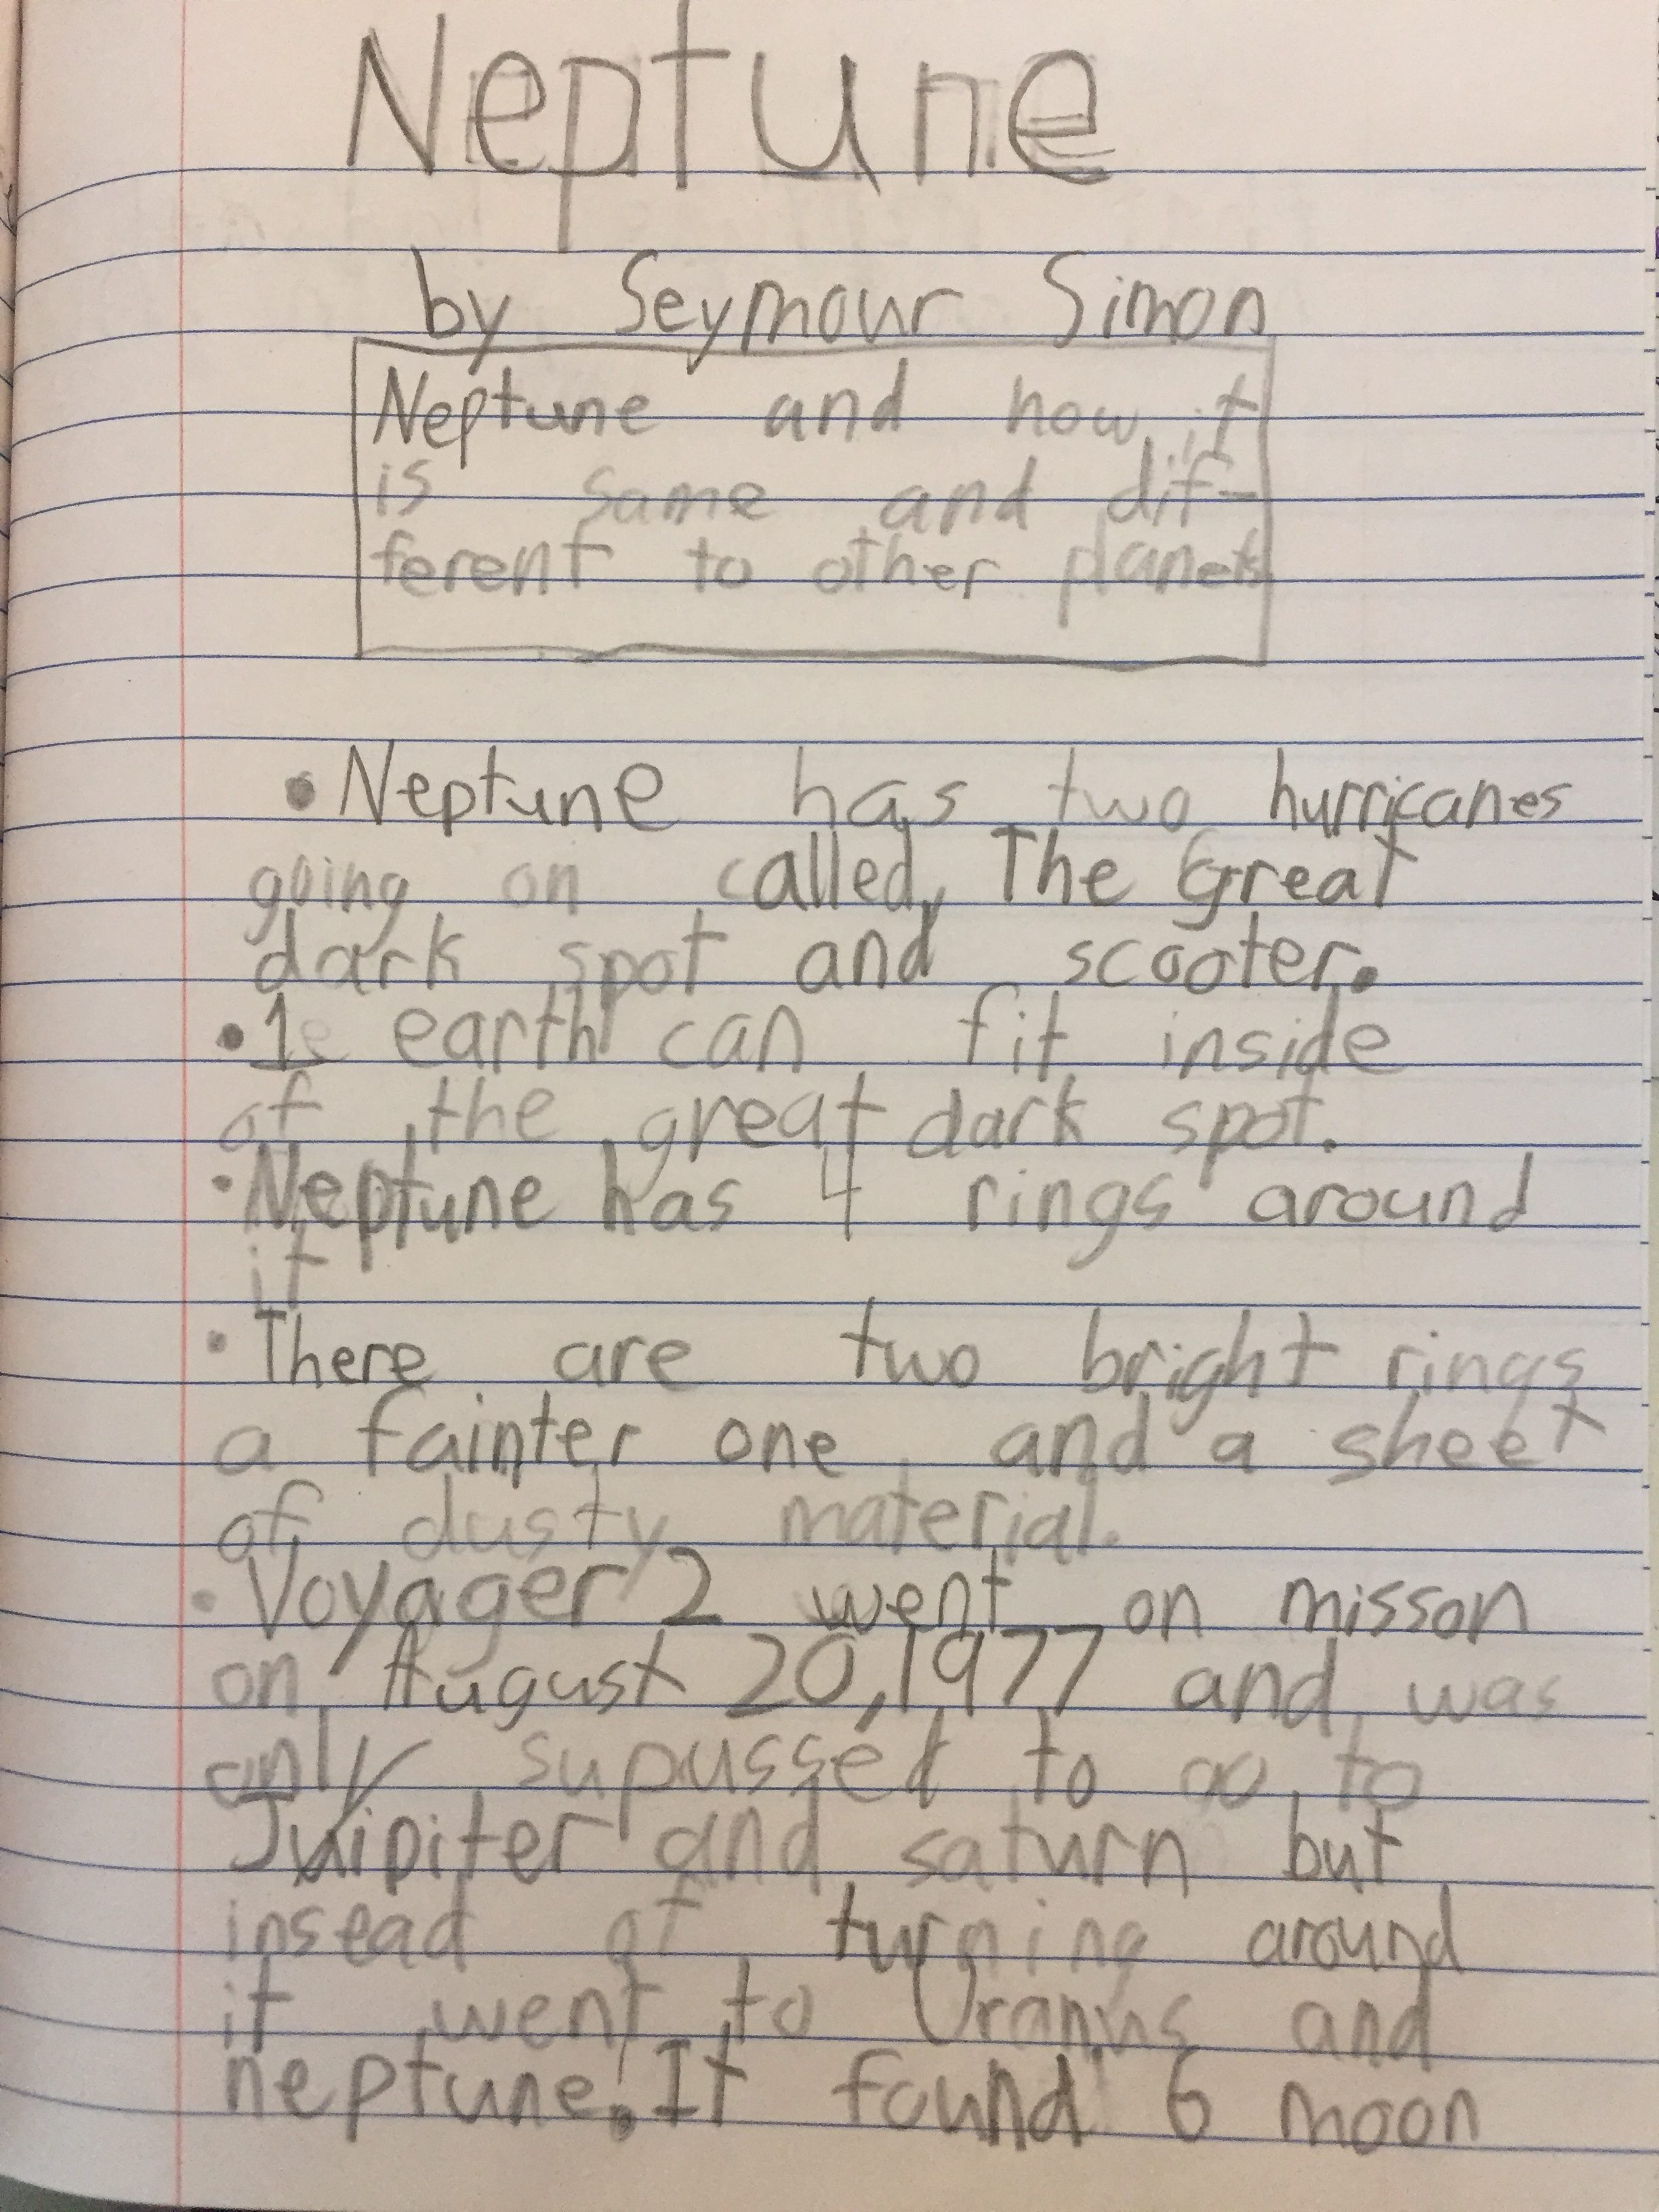 Neptune
by Seymour Simon
Neptune and how it
is same and dif-
ferent to other planets
• Neptune has two hurricanes
going on called, The Great
dark spot and scooter.
• 1 earth can fit inside
of the great dark spot.
• Neptune has 4 rings around
it
• There are two bright rings
a fainter one and a sheet
of dusty material.
• Voyager 2 went on misson
on August 20, 1977 and was
only supussed to go to
Juipiter and saturn but
insead of turning around
it went to Uranus and
neptune. It found 6 moon